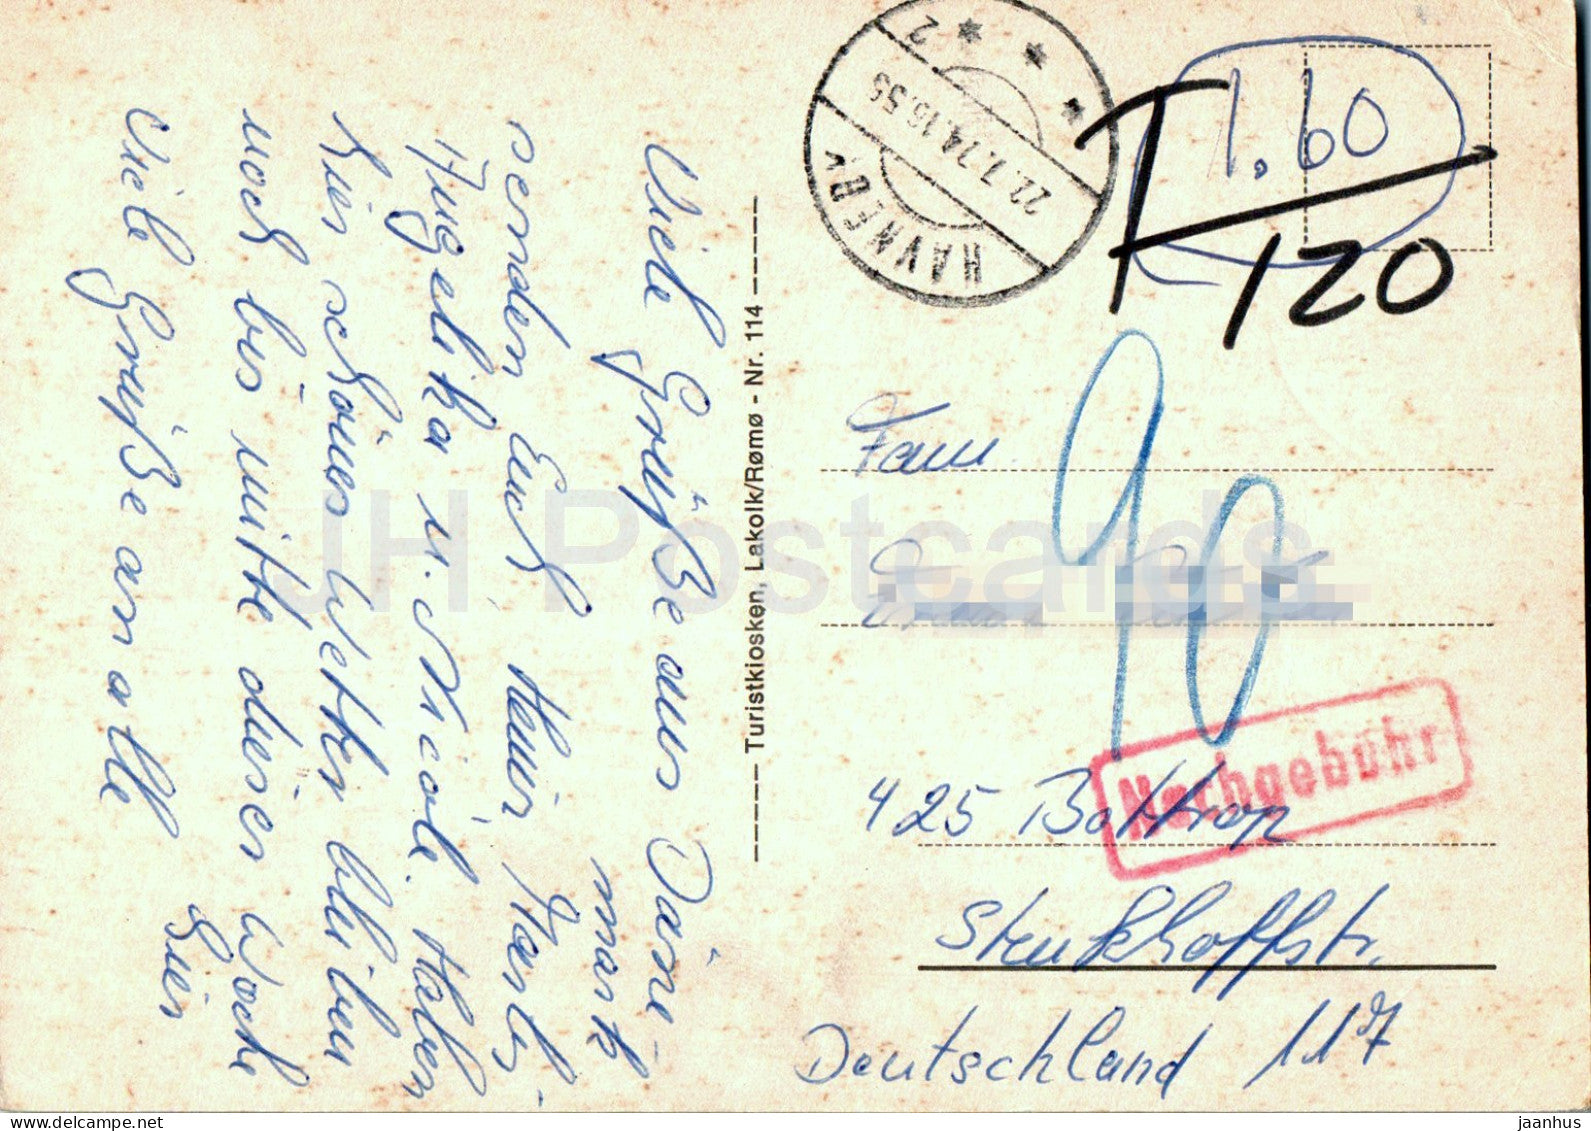 Viele Grüße aus Däne-
mark
senden Euch Heinz, Gerti,
Angelika u. Nicole. Haben
hier schönes Wetter bleiben
noch bis mitte dieser Woche
viele Grüße an alle
hier
Turistkiosken, Lakolk/Rømø - Nr. 114
HAVNEBY
22.7.74.16.55
2
1.60
T
120
90
Fam.
Nachgebühr
425 Bottrop
Stenkhoffstr.
117
Deutschland
JH Postcards
delcampe.net
jaanhus